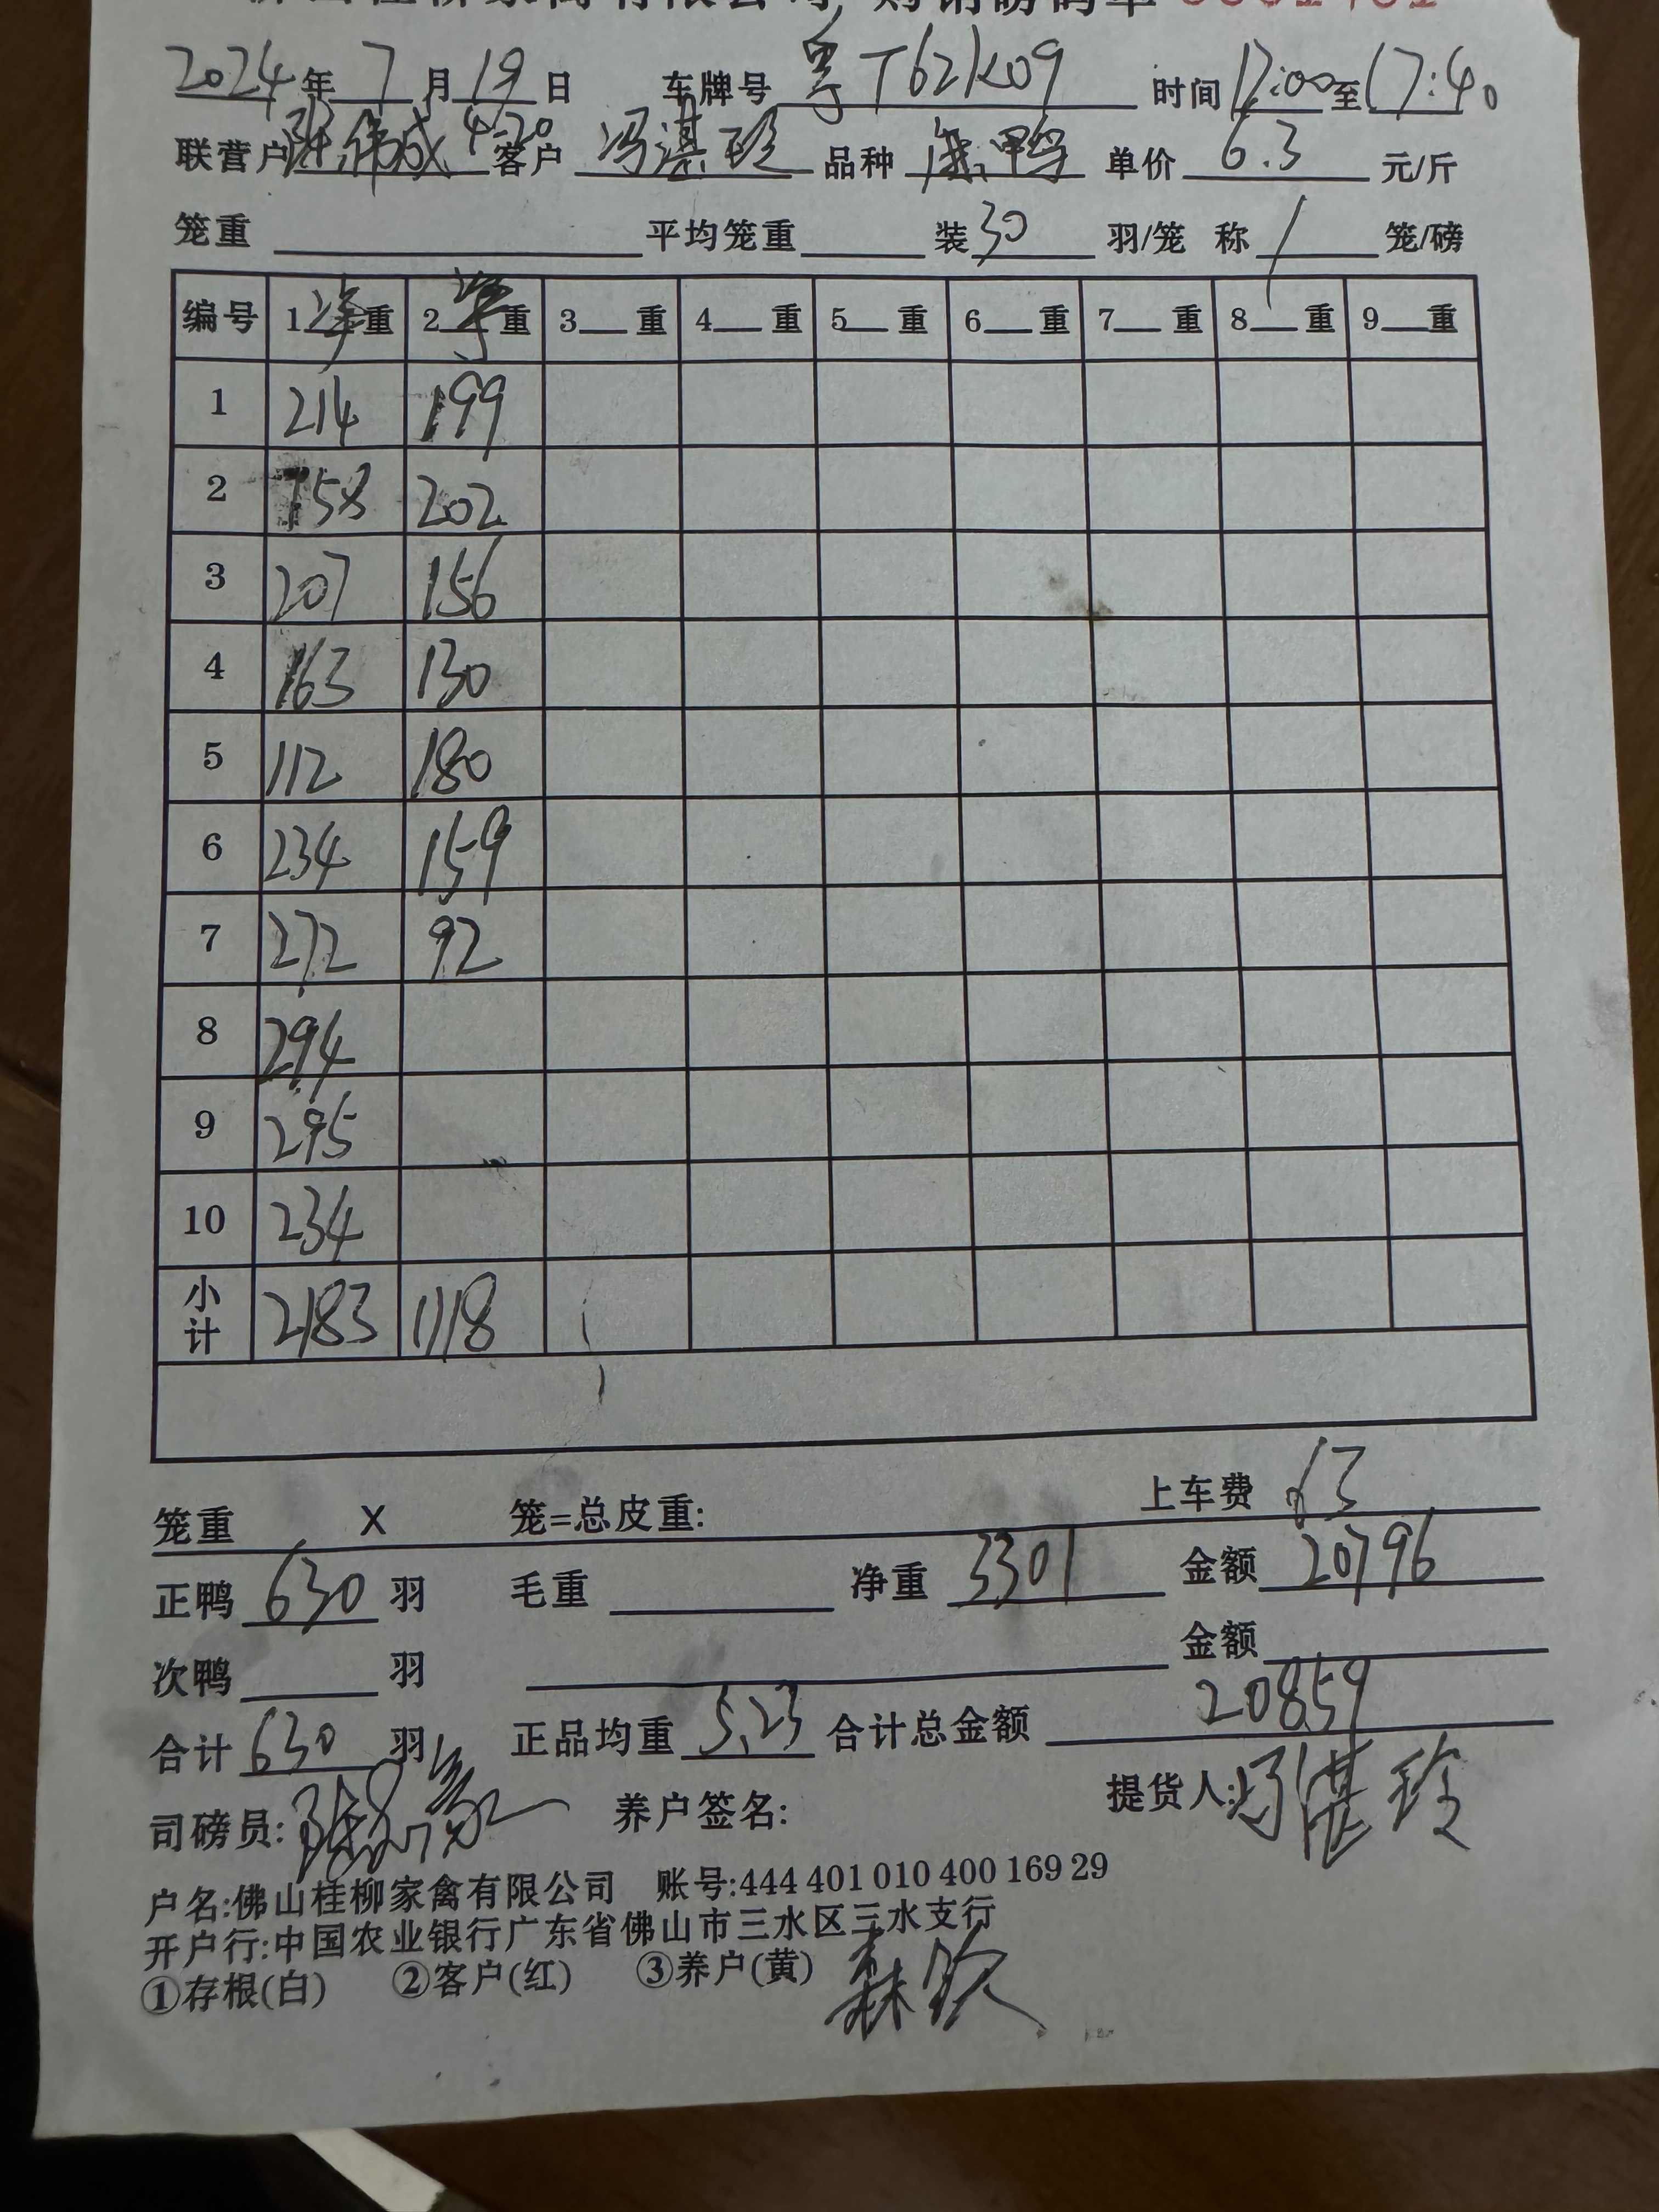 佛山桂柳家禽有限公司 购销磅码单
2024年7月19日 车牌号 粤T62K09 时间17:00至17:40
联营户 陈伟成 客户 冯湛玲 品种 鸭 单价 6.3 元/斤
笼重 平均笼重 装30 羽/笼 称1 笼/磅
编号 1净重 2净重 3 重 4 重 5 重 6 重 7 重 8 重 9 重
1 214 199
2 158 202
3 207 156
4 163 130
5 112 180
6 234 159
7 272 92
8 294
9 295
10 234
小计 2183 1118
笼重 X 笼=总皮重: 上车费 63
正鸭 630 羽 毛重 净重 3301 金额 20796
次鸭 羽 金额
合计 630 羽 正品均重 5.23 合计总金额 20859
司磅员: 养户签名: 提货人: 冯湛玲
户名:佛山桂柳家禽有限公司 账号:444 401 010 400 169 29
开户行:中国农业银行广东省佛山市三水区三水支行
①存根(白) ②客户(红) ③养户(黄)